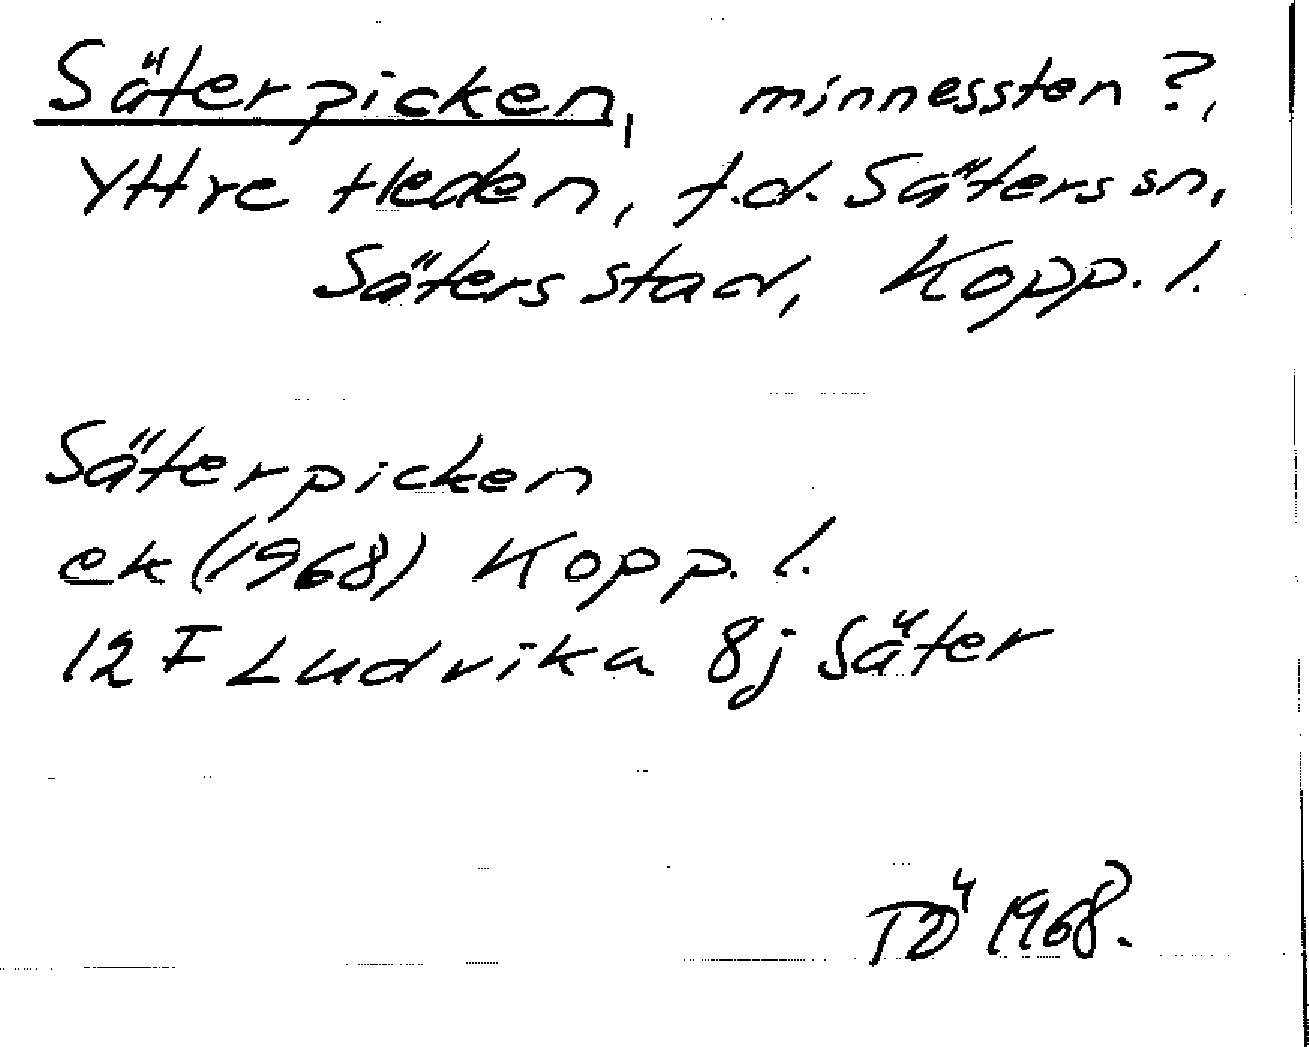 Säterpicken, minnessten?,
Yttre Heden, f.d. Säters sn,
Säters stad, Kopp. l.
Säterpicken
ek (1968) Kopp. l.
12 F Ludvika 8j Säter
TÖ 1968.